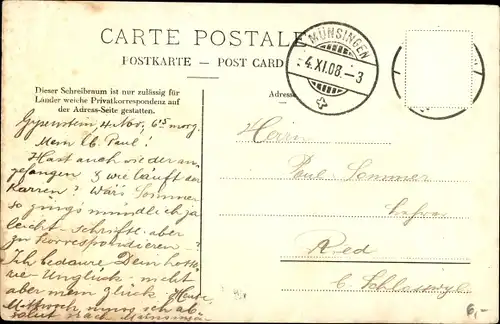 CARTE POSTALE
POSTKARTE — POST CARD
MÜNSINGEN
4.XI.08.–3
Dieser Schreibraum ist nur zulässig für
Länder welche Privatkorrespondenz auf
der Adress-Seite gestatten.
Adresse
4. Nov., 6⁴⁵ morg.
Mein lb. Paul!
Hast auch wieder an-
gefangen & wie läuft der
Karren? Wär's Sommer
so ging's mündlich ja
leicht - schriftl. aber
zu korrespondieren - ?
Ich bedaure Dein
Unglück - nicht
aber mein Glück. Heute
Mittwoch muss ich ab-
nach
Herrn
Paul Sommer
Ried
b. Schlosswyl.
6,-